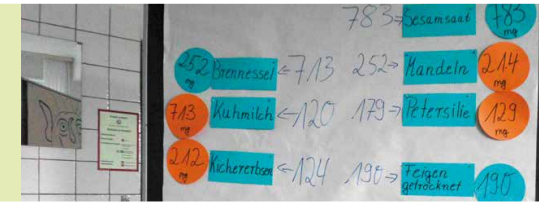 783→ Sesamsaat 783 mg
252 mg Brennessel ←713
252→ Mandeln 214 mg
713 mg Kuhmilch ←120
179→ Petersilie 129 mg
212 mg Kichererbsen ←124
190→ Feigen getrocknet 190